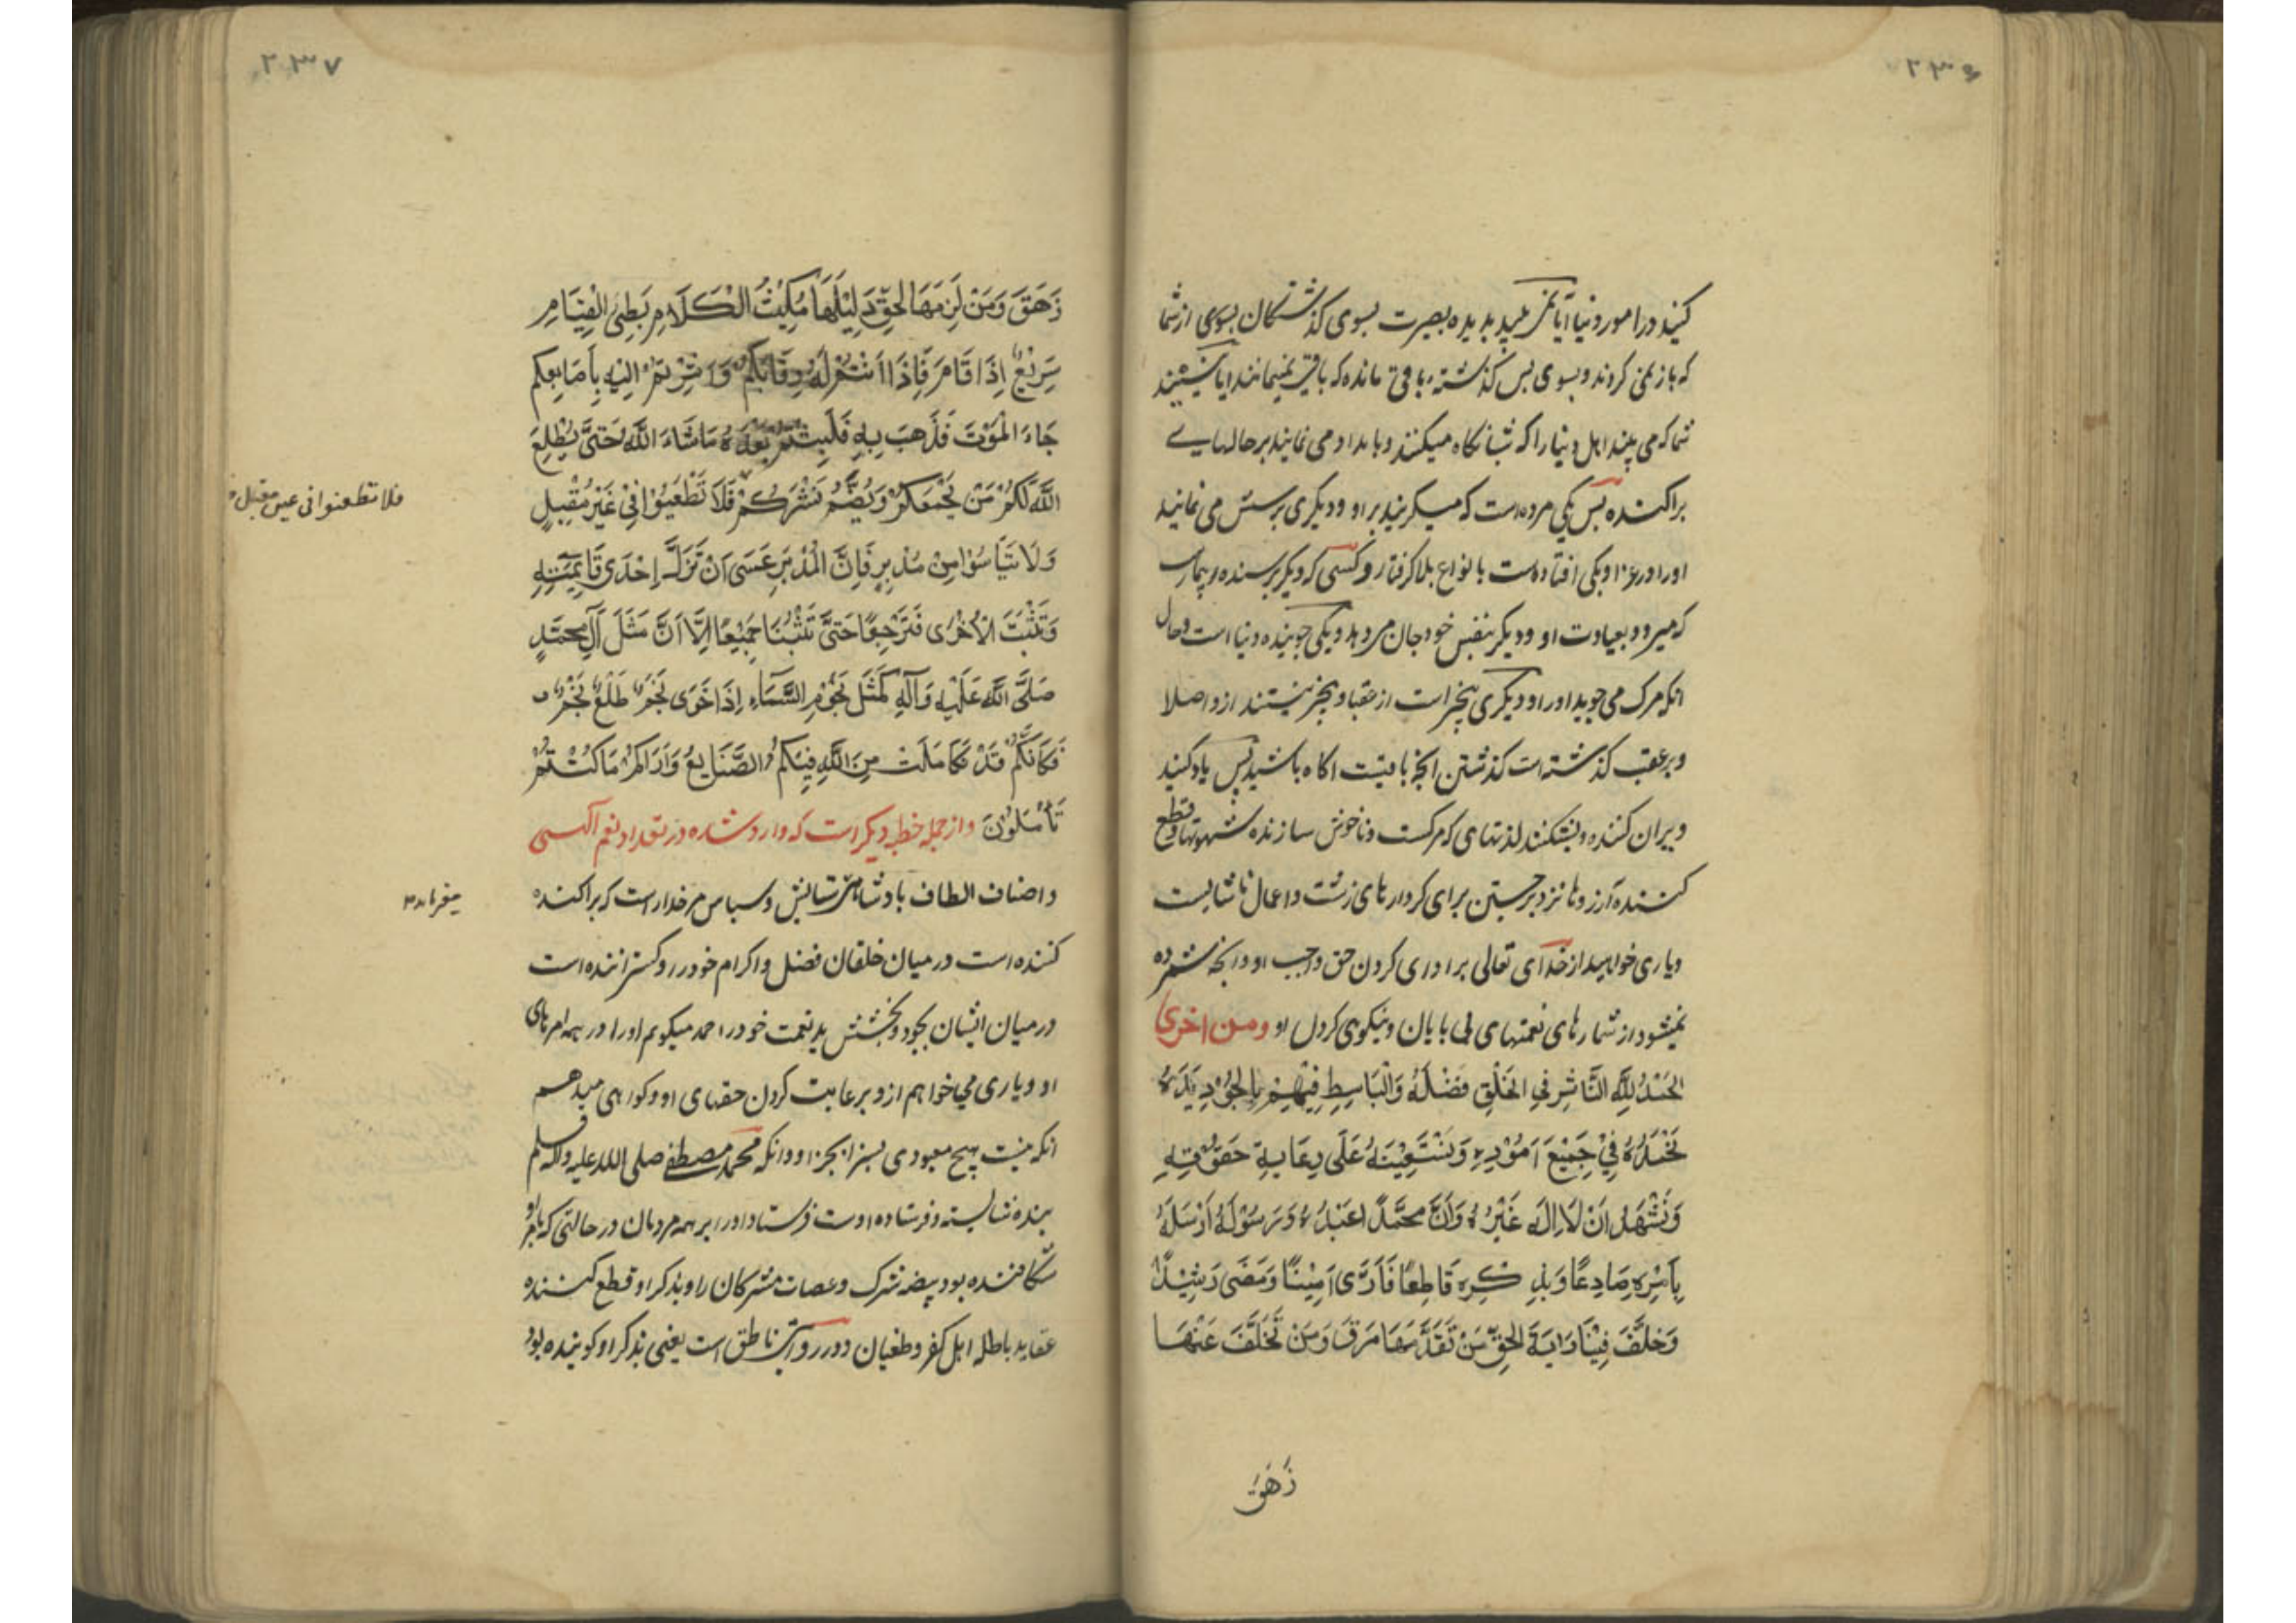 ۲۳۶
کنید در امور دنیا ایا نمی نگرید بدیده بصیرت بسوی کذشتکان بسوی از شما
که باز نمی کردند و بسوی پس کذشته باقی مانده که باقی نمیمانند ایا نیستید
شما که می بینید اهل دنیا را که شبانکاه میکنند و بامداد می نمایند بر حالهایے
پراکنده پس یکی مرده است که میکریند بر او و دیکری پرسش می نمایند
او را در عزا و یکی افتاده است بانواع بلا کرفتار و کسی که دیکر پرسنده بیمار است
که میرود بعیادت او و دیکر بنفس خود جان میدهد و یکی جوینده دنیا است و حال
انکه مرک می جوید او را و دیکری بیخبر است از عقبا و بیخبر نیستند از و اصلا
و بر عقب کذشته است کذشتن انچه باقیست اکاه باشید پس یاد کنید
ویران کننده و بشکننده لذتهای که مرکست و ناخوش سازنده شهوتها و قطع
کننده آرزوها نزد برجستن برای کردارهای زشت و اعمال ناشایست
و یاری خواهید از خدای تعالی بر ادای کردن حق واجب او و انچه شمرده
نمیشود از شمارهای نعمتهای بی پایان و نیکوی کردن او ومن اخری
الحَمْدُ لِلَّهِ النَّاشِرِ فِي الخَلْقِ فَضْلَهُ وَالْبَاسِطِ فِيْهِمْ بِالْجُوْدِ يَدَهُ
نَحْمَدُهُ فِيْ جَمِيْعِ اُمُوْرِهِ وَنَسْتَعِيْنَهُ عَلَى رِعَايَةِ حُقُوْقِهِ
وَنَشْهَدُ اَنْ لَا اِلٰهَ غَيْرُهُ وَاَنَّ مُحَمَّدًا عَبْدُهُ وَرَسُوْلُهُ اَرْسَلَهُ
بِاَمْرِهِ صَادِعًا وَبِذِكْرِهِ قَاطِعًا فَاَدَّى اَمِيْنًا وَمَضَى رَشِيْدًا
وَخَلَّفَ فِيْنَا رَايَةَ الْحَقِّ مَنْ تَقَدَّمَهَا مَرَقَ وَمَنْ تَخَلَّفَ عَنْهَا
زَهَقَ
۲۳۷
زَهَقَ وَمَنْ لَزِمَهَا لَحِقَ دَلِيْلُهَا مَكِيْثُ الْكَلَامِ بَطِيْءُ الْقِيَامِ
سَرِيْعٌ اِذَا قَامَ فَاِذَا اَنْتُمْ لَهُ رِقَابَكُمْ وَاَشَرْتُمْ اِلَيْهِ بِاَصَابِعِكُمْ
جَاءَ الْمَوْتُ فَذَهَبَ بِهِ فَلَبِثْتُمْ بَعْدَهُ مَا شَاءَ اللَّهُ حَتَّى يُطْلِعَ
اللَّهُ لَكُمْ مَنْ يَجْمَعُكُمْ وَيَضُمُّ نَشْرَكُمْ فَلَا تَطْمَعُوْا فِيْ غَيْرِ مُقْبِلٍ
فلا تطعنوا فی عین مقبل
وَلَا تَيْاَسُوْا مِنْ مُدْبِرٍ فَاِنَّ الْمُدْبِرَ عَسَى اَنْ تَزِلَّ اِحْدَى قَائِمَتَيْهِ
وَتَثْبُتَ الْاُخْرٰى فَتَرْجِعَا حَتَّى تَثْبُتَا جَمِيْعًا اَلَا اَنَّ مَثَلَ آلِ مُحَمَّدٍ
صَلَّى اللَّهُ عَلَيْهِ وَآلِهِ كَمَثَلِ نُجُوْمِ السَّمَاءِ اِذَا خَوَى نَجْمٌ طَلَعَ نَجْمٌ
فَكَاَنَّكُمْ قَدْ تَكَامَلَتْ مِنَ اللَّهِ فِيْكُمُ الصَّنَايِعُ وَاَرَاكُمْ مَا كُنْتُمْ
تَأْمَلُوْنَ و از جمله خطبه دیکر است که وارد شده در تعداد نعم الهی
و اصناف الطاف پادشاهی ستایش و سپاس مر خدا راست که پراکنده
میفرماید
کننده است در میان خلقان فضل و اکرام خود را و کستراننده است
در میان ایشان بجود و بخشش ید نعمت خود را حمد میکویم او را در همه امرهای
او و یاری می خواهم از و بر رعایت کردن حقهای او و کواهی میدهم
انکه نیست هیچ معبودی بسزا بجز او و انکه محمد مصطفی صلی الله علیه و اله وسلم
بنده شایسته و فرستاده اوست فرستاد او را بر همه مردمان در حالتی که بامر او
شکافنده بود بیضه شرک و عصات مشرکان را و بذکر او قطع کننده
عقاید باطله اهل کفر و طغیان و در روایتی ناطق است یعنی بذکر او کوینده بود